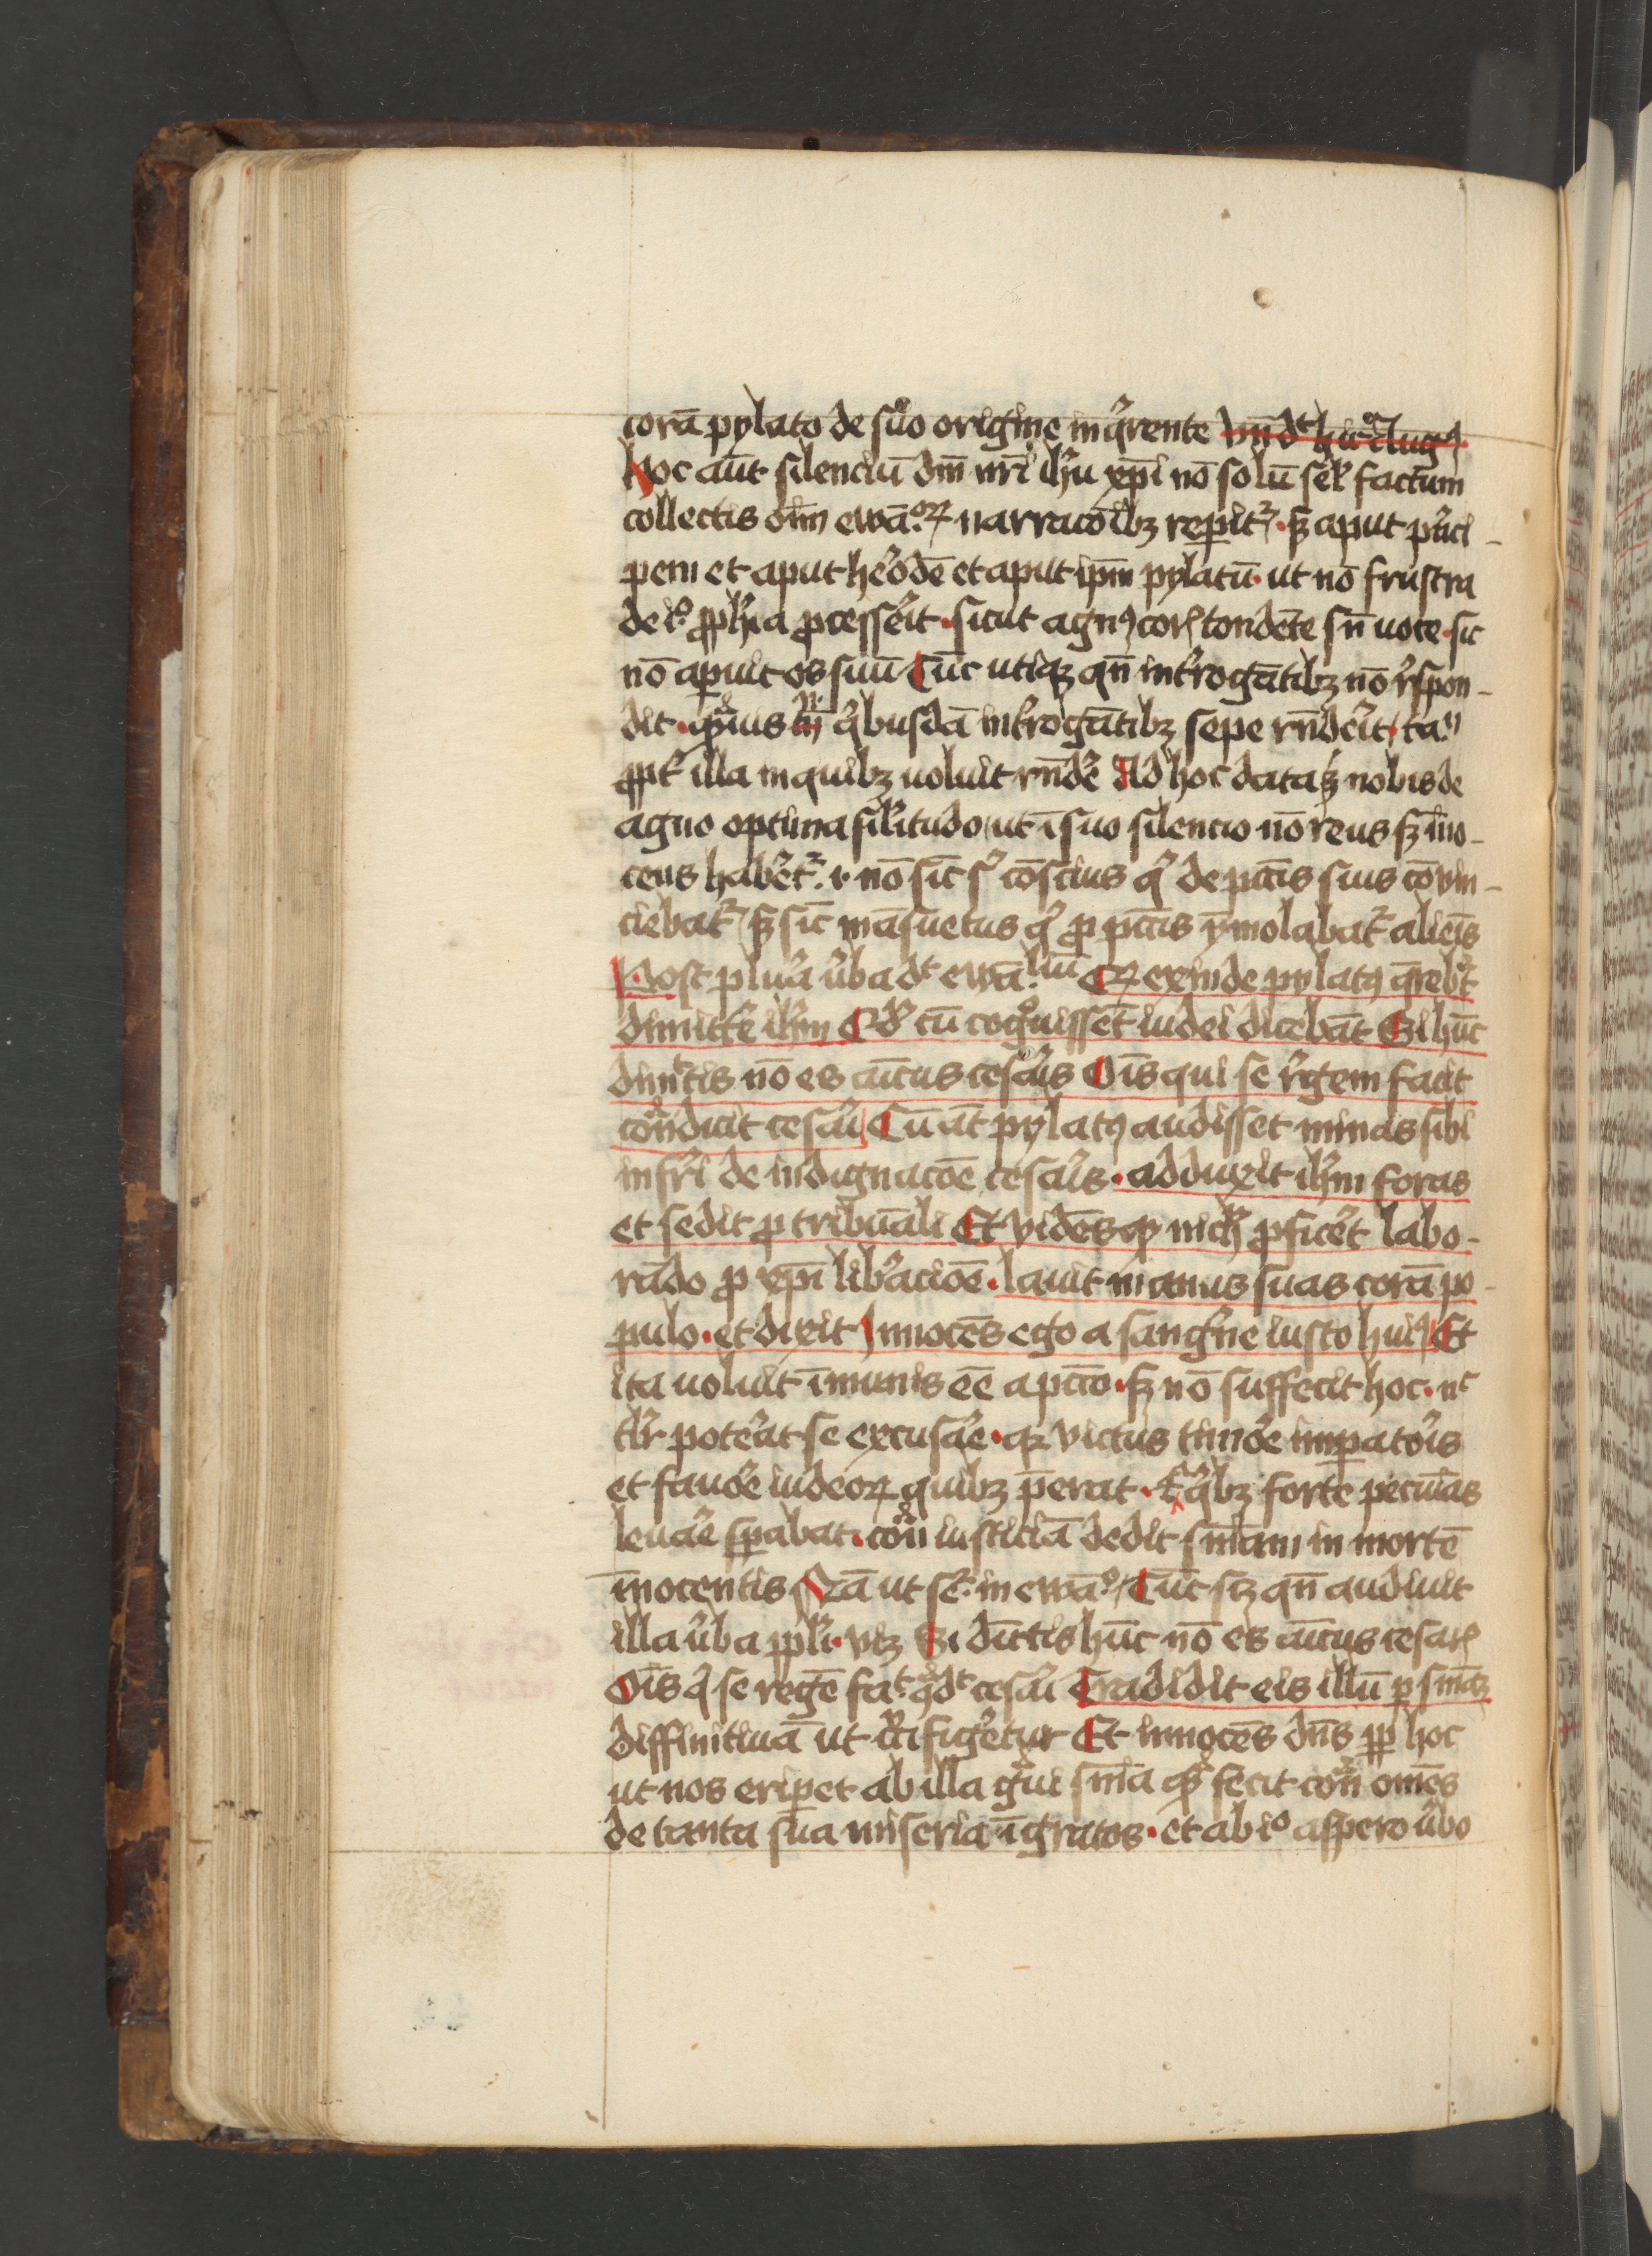 corā pylato de suo origine inq̄rente
Hoc aūt silenciū dm̄ nr̄i ih̄u xp̄i nō solū sel̄ factum
collectis oīm ewā.oꝝ narracōibꝫ repit̄ · sꝫ aput p̄nci-
pem et aput herodē et aput ip̄m pylatū · ut nō frustra
de io ꝓph̄ia ꝓcesserit · sicut agnꝰ corā tondēte sn̄ uoce · sic
nō apuit os suū Tūc utiqꝫ qn̄ int̄rogātibꝫ nō respon-
dit · qͣuis q̄busdā int̄rogātibꝫ sepe rn̄derit ta.
ꝓpt̄ illa in quibꝫ uoluit rn̄dē Ad hoc data ē nobis de
agno optima sil̄itudo ut ī suo silencio nō reus sꝫ īno-
cens haberet̄. ⁊ nō sic̄ cōscius q̄ de pct̄is suis cōvin-
ciebat̄ sꝫ sic̄ māsuetus q̄ ꝓ pct̄is ymolabat̄ alienis
Post plura ūba dt ewā.liū Et exinde pylatꝰ q̄rebat
dimitte ih̄m Qd̄ cū cognouissēt iudei dicebāt Si hūc
dimittis nō es amicus cesaris Oīs qui se regem facit
cōtͣdicit cesari Cū āt pylatꝰ audisset minas sibi
inferri de indignacōe cesaris · adduxit ih̄m foras
et sedit ꝓ tribunali Et vidēs qꝫ nich̄ ꝓficet labo-
rādo ꝓ xp̄i liberacioē · lauit manus suas corā po-
pulo · et dixit Innocēs ego a sanguine iusto huiꝰ Et
ita uoluit īmunis eē a pctō · sꝫ nō suffecit hoc · nc
tlr̄ poterat se excusare · qꝫ victus timore imperatoris
et fauore iudeoꝝ quibꝫ p̄erat · ⁊ a q̄bꝫ forte pecunias
leuare sꝑabat · cōtͣ iusticiā dedit sniam in mortē
īnocentis Nā ut sͤ. in ewā.o Tūc sꝫ qn̄ audiuit
illa ūba ppl̄i · vꝫ Si dimittis hūc nō es amicus cesaris
Oīs q̄ se regē fat. 9tͣdt cesari Tradidit eis illū ꝑ sniaꝫ
diffinitiuā ut crucifigeretur Et innocēs dn̄s ꝓp hoc
ut nos eriperet ab illa graui snīa quā fecit cōtͣ omēs
de tanta sua miseria īgratos · et ab io aspero ūbo